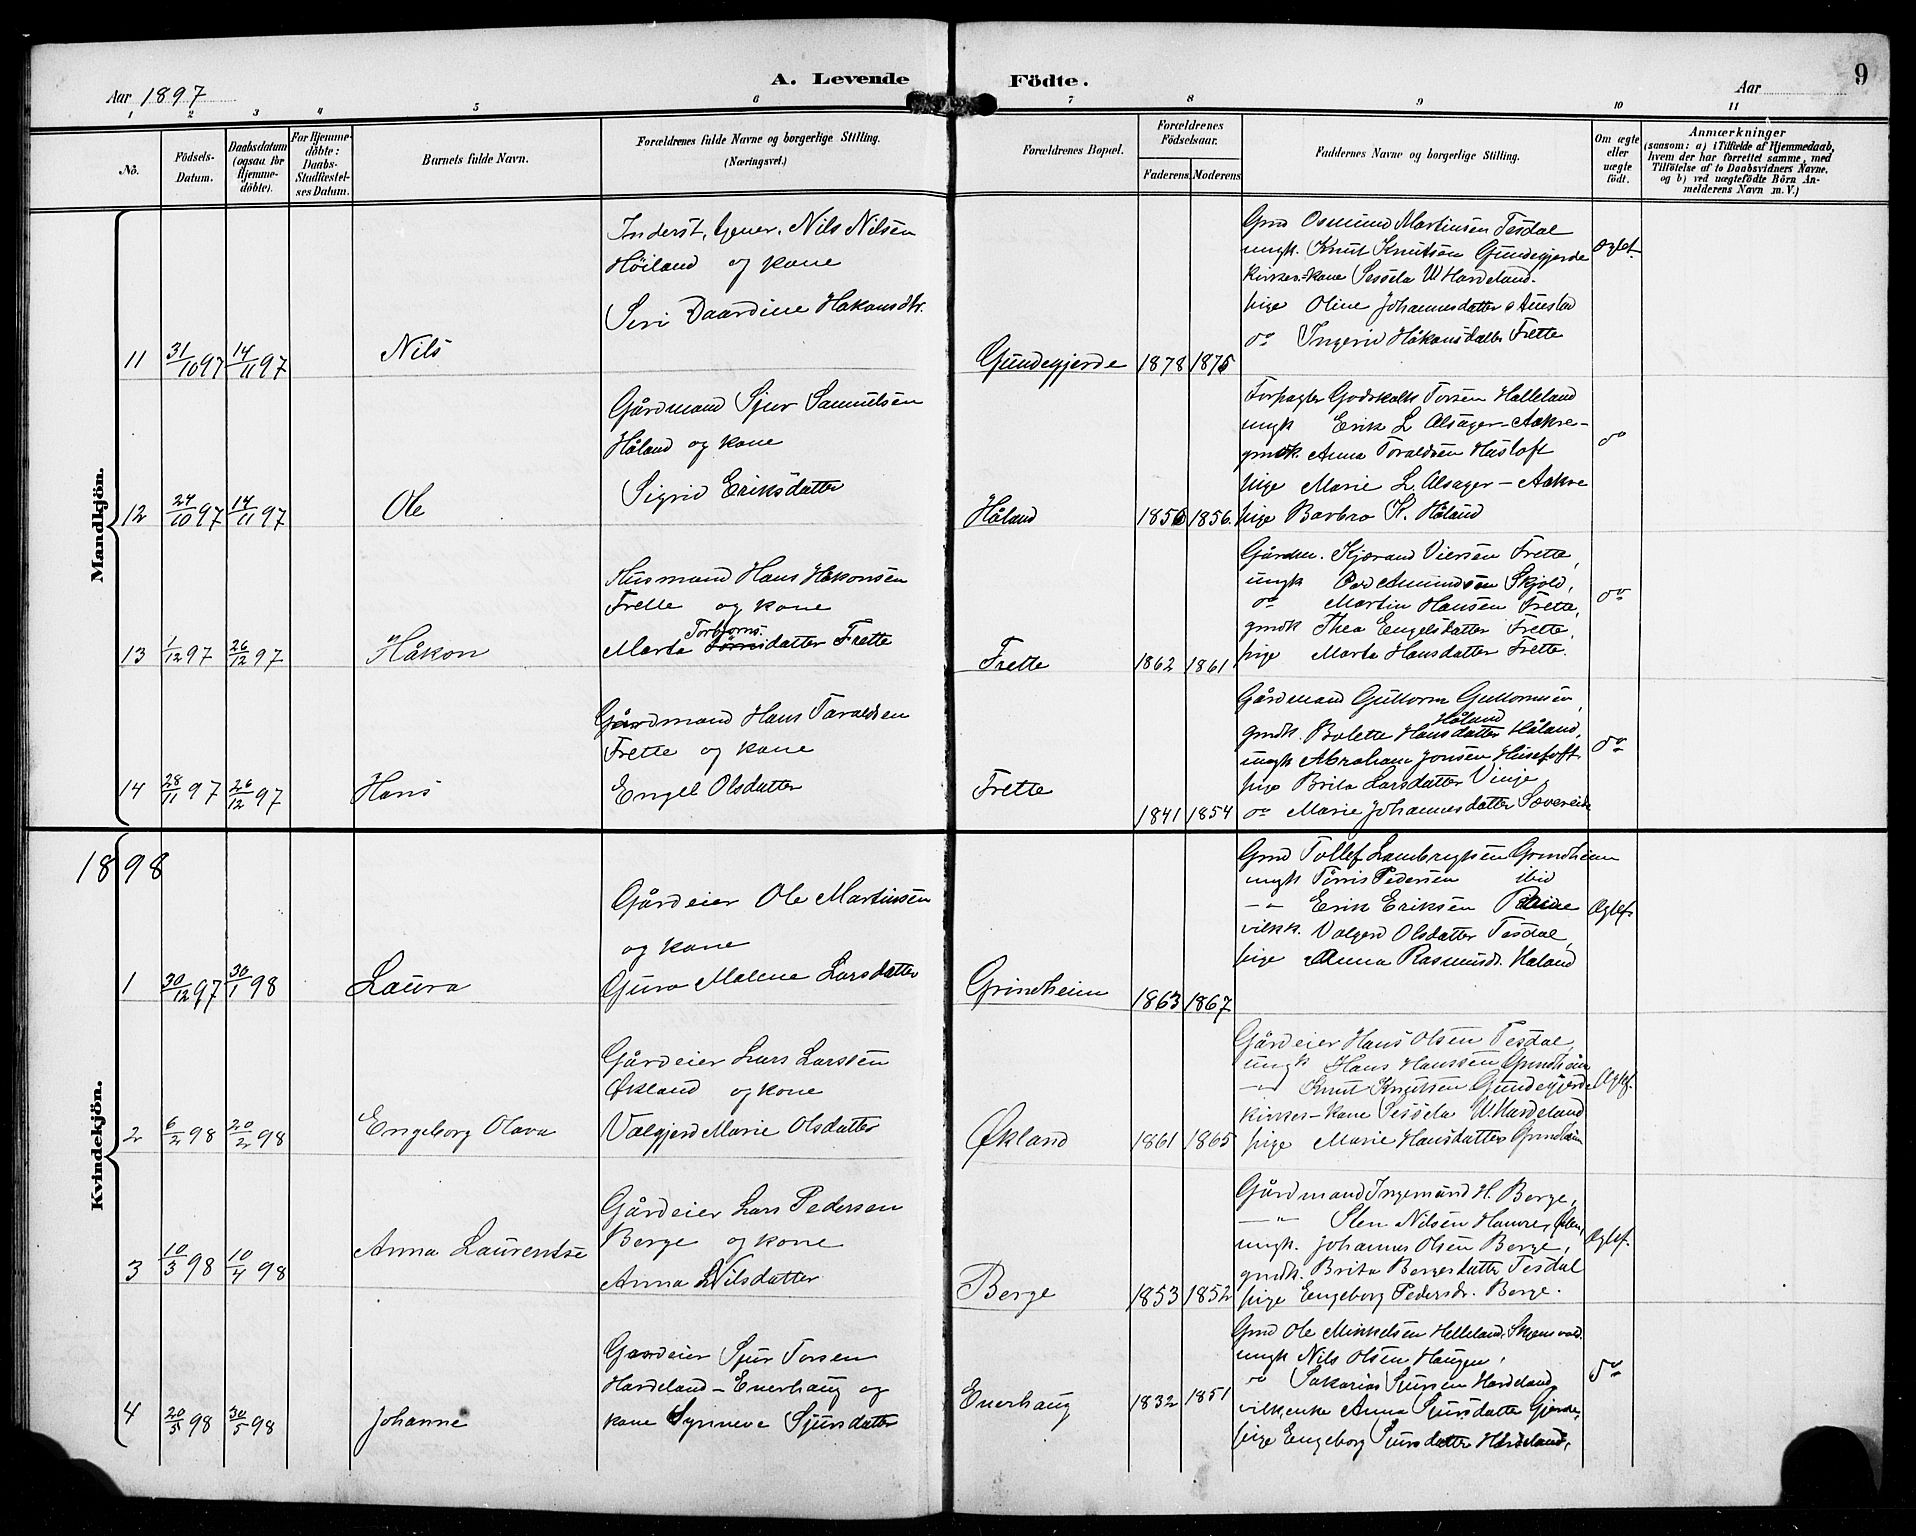 A. Levende Födte.
9
Aar 1897
Aar
1 2 3 4 5 6 7 8 9 10 11
No.
Födsels-Datum.
Daabsdatum (ogsaa for Hjemme-döbte).
For Hjemme-döbte: Daabs-Stadfæstelses Datum.
Barnets fulde Navn.
Forældrenes fulde Navne og borgerlige Stilling. (Næringsvei.)
Forældrenes Bopæl.
Forældrenes Födselsaar.
Faderens. Moderens.
Faddernes Navne og borgerlige Stilling.
Om ægte eller uægte født.
Anmærkninger
(saasom: a) i Tilfælde af Hjemmedaab, hvem der har forrettet samme, med Tilföielse af to Daabsvidners Navne, og b) ved uægtefödte Börn Anmelderens Navn m. V.)
Mandkjön.
11 31/10 97 14/11 97 Nils
Inderst, Nils Nilsen
Höiland og kone
Siri Daardine Hakansdtr.
Gundegjerde 1878 1875
Gmd Osmund Martinsen Tesdal
ungk. Knut Knutsen Gundegjerde
kirkes.-kone Sessela W Hardeland.
pige Oline Johannesdatter
do Ingerid Håkansdatter Frette
Ægtef.
12 24/10 97 14/11 97 Ole
Gårdmand Sjur Samuelsen
Håland og kone
Sigrid Eriksdatter
Håland 1856 1856.
Forpagter Godskalk Torsen Halleland
ungk Erik L Alsager - Aakre -
gmdk. Anna Toraldsen Husloft
pige Marie L. Alsager - Aakre
pige Barbro K. Håland
do
13 1/12 97 26/12 97 Håkon
Husmand Hans Håkonsen
Frette og kone
Torbjørns.
Marta datter Frette
Frette 1862 1861
Gårdm. Kjørand Viersen Frette,
ungk Amundsen Skjold,
do Martin Hansen Frette,
gmdk Thea Engelsdatter Frette,
pige Marta Hansdatter Frette.
do
14 28/11 97 26/12 97 Hans
Gårdmand Hans Taraldsen
Frette og kone
Engel Olsdatter
Frette 1841 1854
Gårdmand Guttorm Guttormsen
Håland
gmdk. Bolette Hansdatter Håland,
ungk Abraham Jonsen Husetoft
pige Brita Larsdatter Vinje,
do Marie Johannesdatter Sævereide
do
1898
Kvindekjön.
1 30/12 97 30/1 98 Laura
Gårdeier Ole Martinsen
og kone
Guro Malene Larsdatter
Grindheim 1863 1867
Gmd Tollef Lambregtsen Grindheim
ungk Törris Pedersen ibid
-"- Erik Eriksen
vilkk. Valgerd Olsdatter Tesdal,
pige Anna Rasmusdr. Håland
Ægtef.
2 6/2 98 20/2 98 Engeborg Olava
Gårdeier Lars Larssen
Økland og kone
Valgjerd Marie Olsdatter
Økland 1861 1865
Gårdeier Hans Olsen Tesdal,
ungk Hans Hanssen Grindheim
-"- Knut Knutsen Gundegjerde
kirkes-kone Sessela W. Hardeland
pige Marie Hansdatter Grindheim
Ægtef.
3 10/3 98 10/4 98 Anna Laurentse
Gårdeier Lars Pedersen
Berge og kone
Anna Nilsdatter
Berge 1853 1852
Gårdmand Ingemund H. Berge,
-"- Sten Nilsen Hamre, Ølen,
ungk. Johannes Olsen Berge,
gmdk. Brita Bergesdatter Tesdal
pige Engeborg Pedersdr. Berge.
Ægtef.
4 20/5 98 30/5 98 Johanne
Gardeier Sjur Torsen
Hardeland - Enerhaug og
kone Synneve Sjursdatter
Enerhaug 1832 1851
Gmd Ole Mikkelsen Helleland, Skjønsvod.
ungk Nils Olsen Haugen,
do Sakarias Sjursen Hardeland
vilkenke Anna Sjursdatter Gjerde,
pige Engeborg Sjursdatter Hardeland,
do